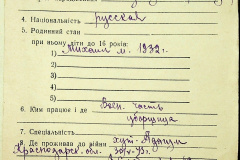 4. Національність русская
5. Родинний стан
при ньому діти до 16 років:
1) Михаил м. 1932 г.
2)
3)
4)
5)
6. Ким працює і де Воен. часть
уборщица
7. Спеціяльність
8. Де проживав до війни хут.
Краснодарск. обл.